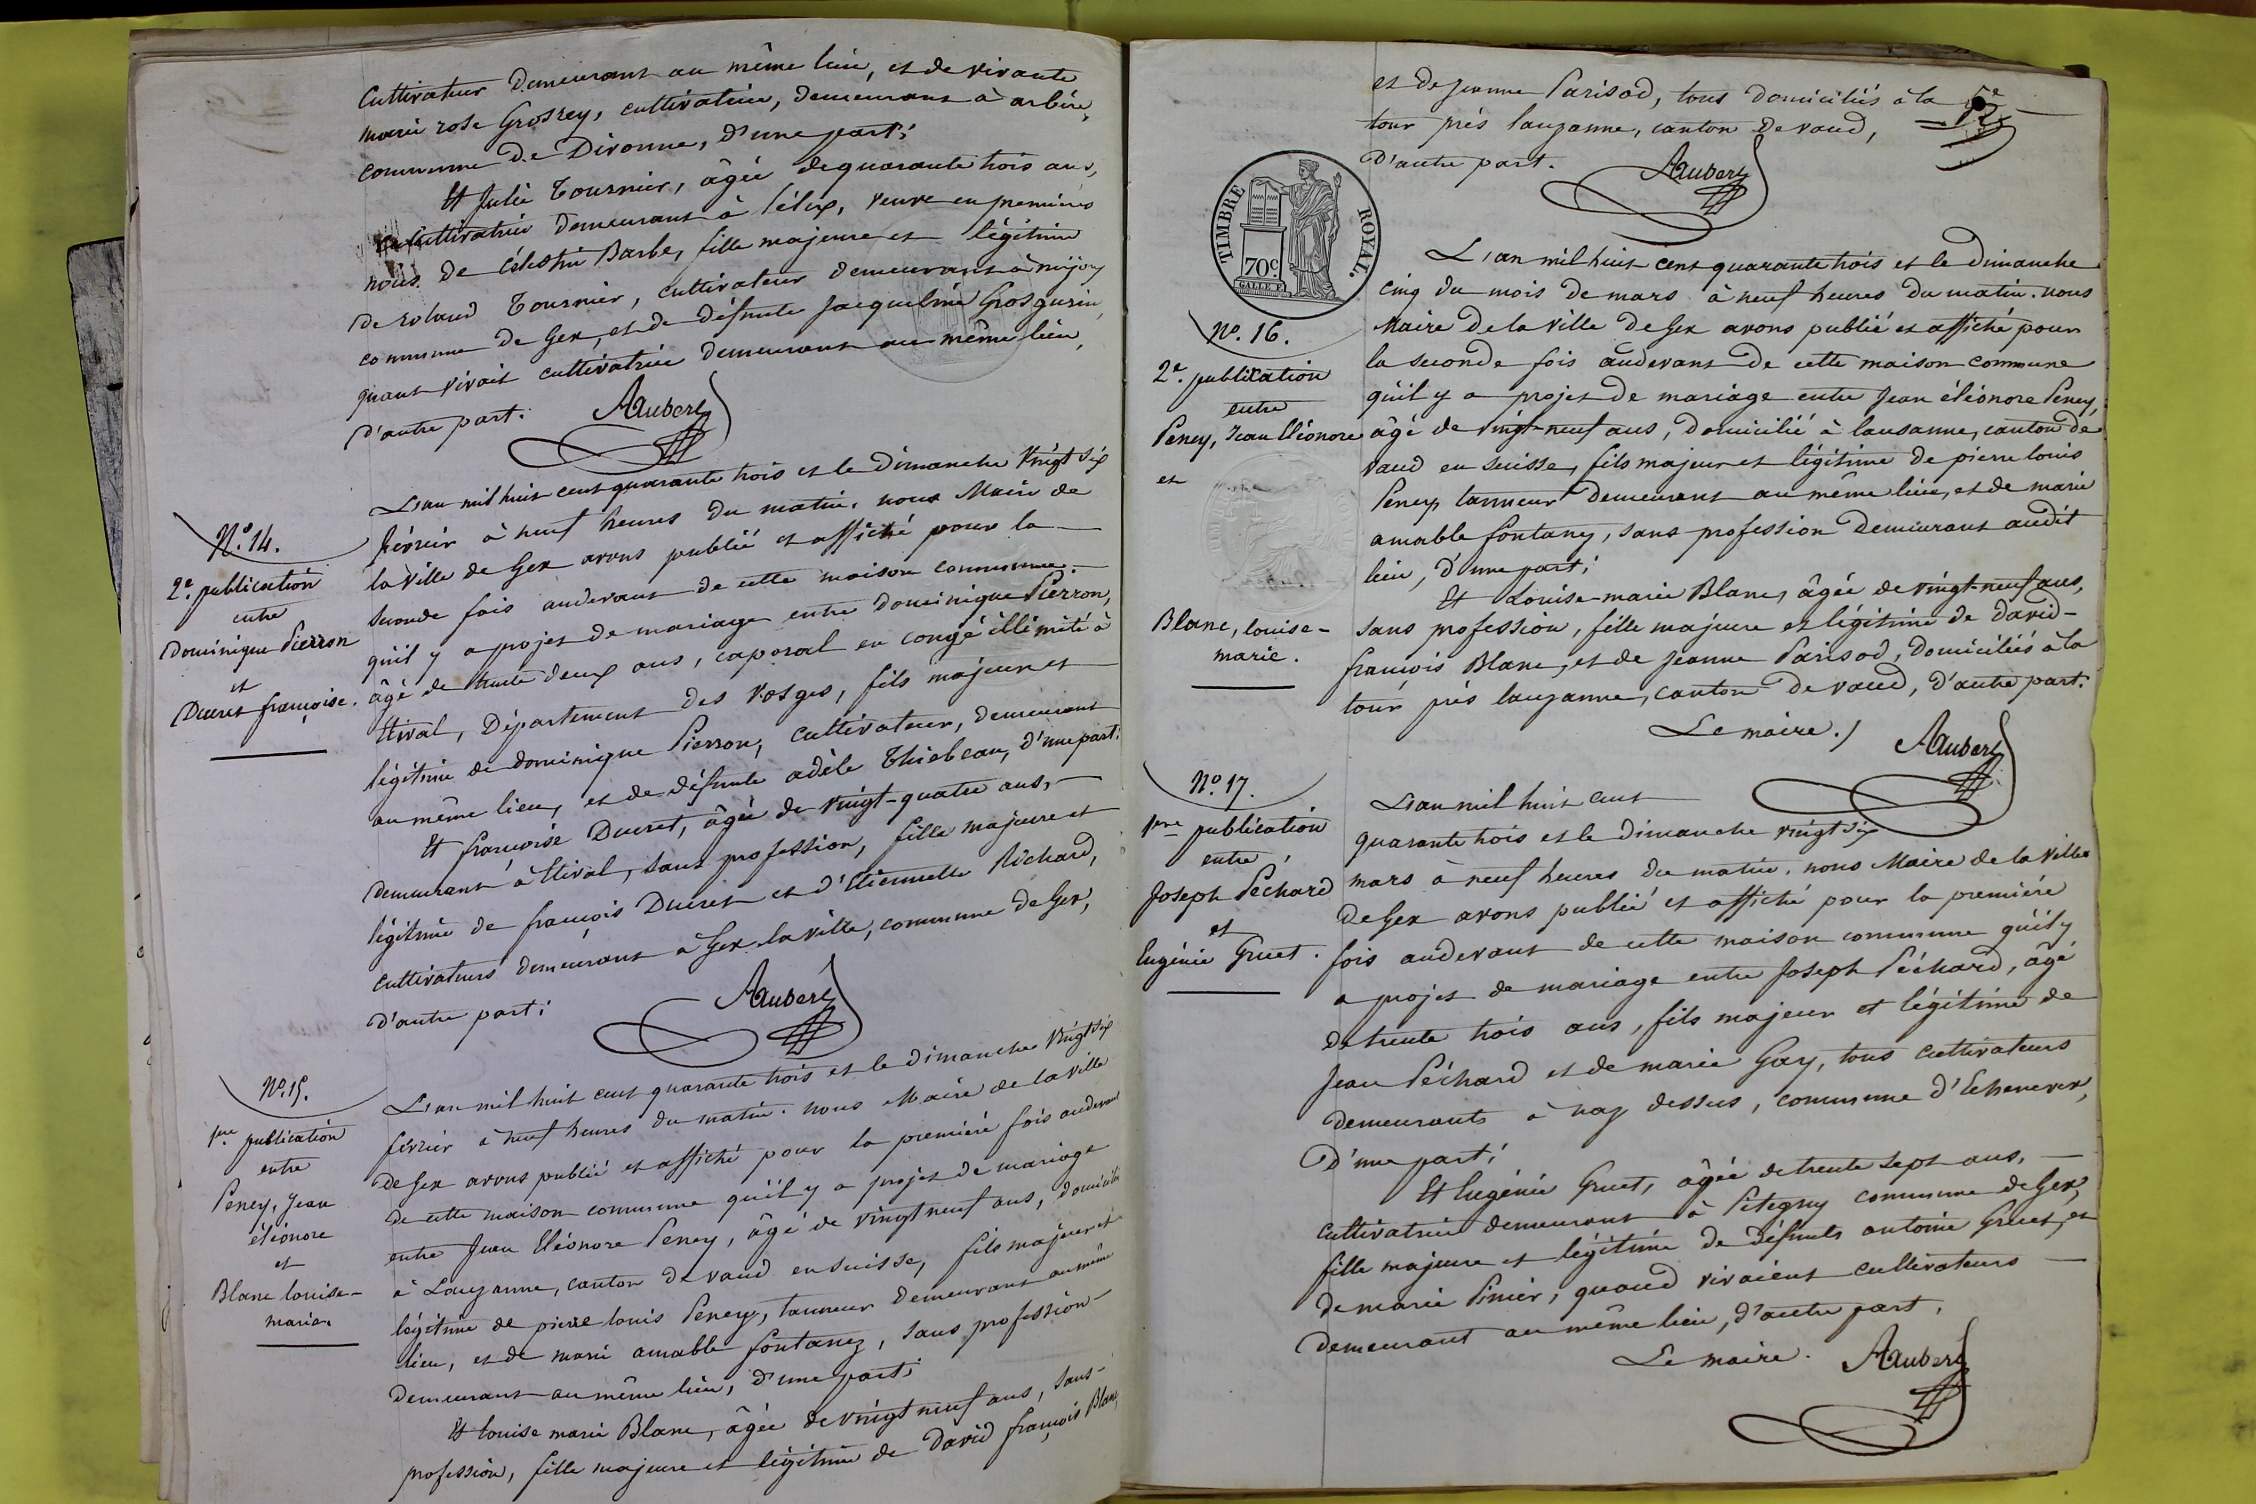 Cultivateur demeurant au même lieu, et de vivante
marie rose Grosrey, cultivatrice, demeurant à arbère,
commune de Divonne, d'une part;
Et Julie Tournier, âgée de quarante trois ans,
cultivatrice demeurant à Lélex, veuve en premières
nôces de célestin Barbe, fille majeure et légitime
de roland Tournier, cultivateur demeurant à mijoux
commune de Gex, et de défunte Jacqueline Grosgurin,
quant vivait cultivatrice demeurant au même lieu,
d'autre part.
AAubert
N.° 14.
2.e publication
entre
Dominique Pierron
et
Ducret françoise.
L'an mil huit cent quarante trois et le dimanche vingt six
février à neuf heures du matin. nous Maire de
la ville de Gex avons publié et affiché pour la
seconde fois audevant de cette maison commune
qu'il y a projet de mariage entre dominique Pierron,
âgé de trente deux ans, caporal en congé illimité à
Etival, Département des vosges, fils majeur et
légitime de dominique Pierron, cultivateur, demeurant
au même lieu, et de défunte adèle Thiebeau, d'une part;
Et françoise Ducret, âgée de vingt-quatre ans,
demeurant à Etival, sans profession, fille majeure et
légitime de françois Ducret et d'Etiennette Richard,
cultivateurs demeurant à Gex la ville, commune de Gex,
d'autre part;
AAubert
N.° 15.
1ere publication
entre
Peney, Jean
éléonore
et
Blanc louise-
marie.
L'an mil huit cent quarante trois et le dimanche vingt six
février à neuf heures du matin. nous Maire de la ville
de Gex avons publié et affiché pour la première fois audevant
de cette maison commune qu'il y a projet de mariage
entre Jean Eléonore Peney, âgé de vingt neuf ans, domicilié
à Lauzanne, canton de vaud en suisse, fils majeur et
légitime de pierre louis Peney, tanneur demeurant au même
lieu, et de marie amable fontany, sans profession
demeurant au même lieu, d'une part;
Et louise marie Blanc, âgée de vingt neuf ans, sans-
profession, fille majeure et légitime de david françois Blanc,
et de Jeanne Parisod, tous domiciliés à la
tour près lauzanne, canton de vaud,
d'autre part.
AAubert
TIMBRE ROYAL.
70 c.
N°. 16.
2e. publication
entre
Peney, Jean Eléonore
et
Blanc, louise-
marie.
L'an mil huit cent quarante trois et le dimanche
cinq du mois de mars à neuf heures du matin. nous
Maire de la ville de Gex avons publié et affiché pour
la seconde fois audevant de cette maison commune
qu'il y a projet de mariage entre Jean éléonore Peney,
âgé de vingt-neuf ans, domicilié à lausanne, canton de
vaud en suisse, fils majeur et légitime de pierre louis
Peney tanneur demeurant au même lieu, et de marie
amable fontany, sans profession demeurant audit
lieu, d'une part;
Et Louise-marie Blanc, âgée de vingt-neuf ans,
sans profession, fille majeure et légitime de david-
françois Blanc, et de Jeanne Parisod, domiciliés à la
tour près lauzanne, canton de vaud, d'autre part.
Le maire./ AAubert
N° 17.
1ere publication
entre
Joseph Péchard
et
Eugénie Gruet.
L'an mil huit cent
quarante trois et le dimanche vingt six
mars à neuf heures du matin. nous Maire de la ville
de Gex avons publié et affiché pour la première
fois audevant de cette maison commune qu'il y
a projet de mariage entre Joseph Péchard, âgé
de trente trois ans, fils majeur et légitime de
Jean Péchard et de marie Gay, tous cultivateurs
demeurants à naz dessus, commune d'Echenevex,
d'une part;
Et Eugénie Gruet, âgée de trente sept ans,
cultivatrice demeurant à Pitegny commune de Gex,
fille majeure et légitime de défunts antoine Gruet, et
de marie Pinier, quand vivaient cultivateurs
demeurant au même lieu, d'autre part.
Le maire. AAubert